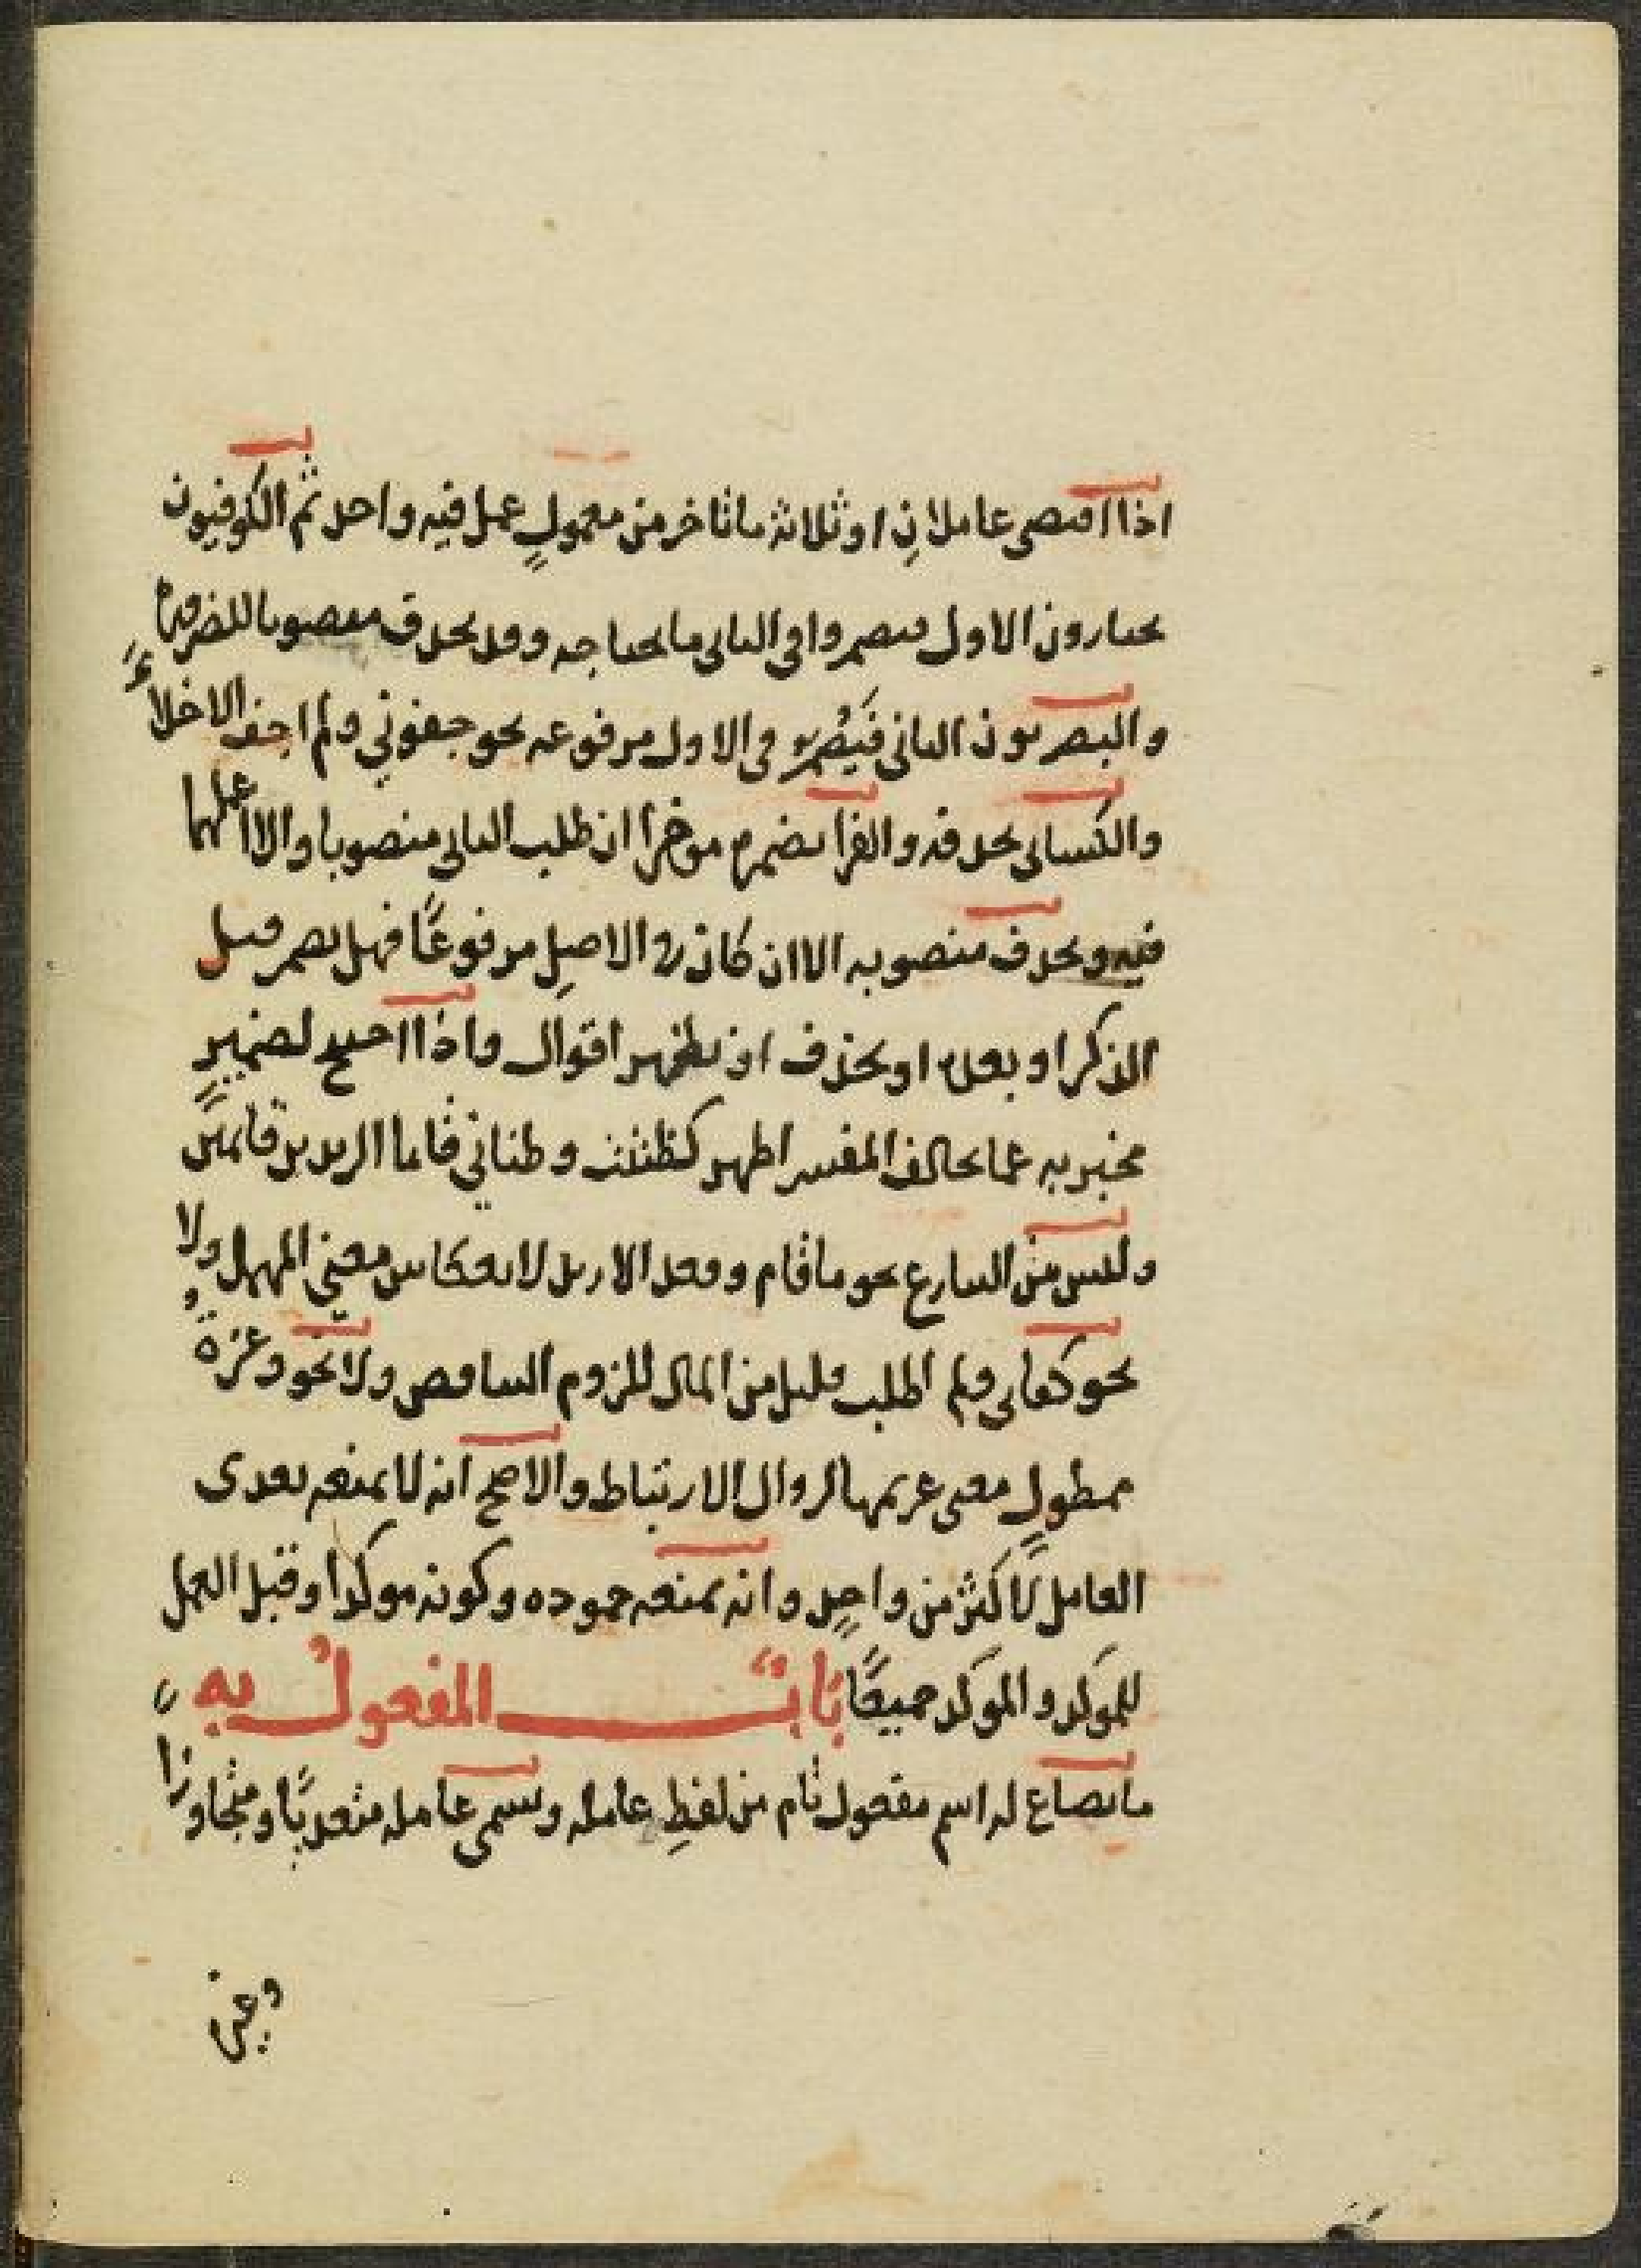 اذا اقتضى عاملانِ او ثلاثة ما تاخر من معمولٍ عمل فيه واحد ثم الكوفيون
يختارون الاول فيضمروا في الثاني ما يحتاجه وقد يحذف منصوبا للضرورة
والبصريون الثاني فيُضمَر في الاول مرفوعه نحو جفوني ولم اجف الاخلاءً
والكسائي يحذفه والفرا يضمره موخرا ان طلب الثاني منصوبا والا اعملهما
فيه ويحذف منصوبه الا ان كان في الاصلِ مرفوعًا فهل يضمر قبل
الذكر او بعده او يحذف او يظهر اقوال واذا احتيج لضميرٍ
مخبر به عما يخالف المفسر اظهر كظننت وظناني قايما الزيدين قايمَين
وليس من التنازع نحو ما قام وقعد الا زيد لانعكاس معنى المهمل ولا
نحو كفاني ولم اطلب قليل من المال للزوم التناقض ولا نحو وعزةُ
ممطولٍ معنى غريمها لزوال الارتباط والاصح انه لا يمنعه تعدى
العامل لاكثر من واحدٍ وانه يمنعه جموده وكونه موكدا وقيل العمل
للموكد والموكد جميعًا بَابُ المفعولُ به
ما يصاغ له اسم مفعول تام من لفظِ عامله ويسمى عامله متعديًا ومجاوزا
وغير